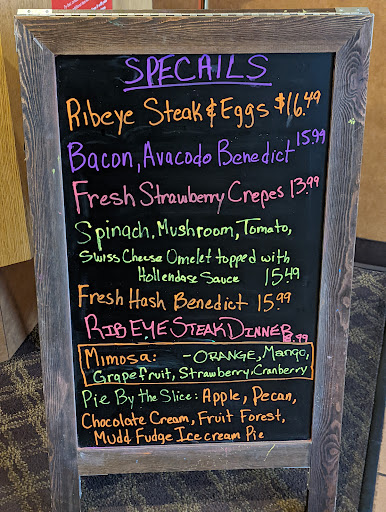 SPECAILS
Ribeye Steak & Eggs $16.49
Bacon, Avacodo Benedict 15.99
Fresh Strawberry Crepes 13.99
Spinach, Mushroom, Tomato,
Swiss Cheese Omelet topped with
Hollendase Sauce 15.49
Fresh Hash Benedict 15.99
RIB EYE STEAK DINNER
Mimosa: - ORANGE, Mango,
Grapefruit, Strawberry, Cranberry
Pie By the Slice: Apple, Pecan,
Chocolate Cream, Fruit Forest,
Mudd Fudge Ice cream Pie